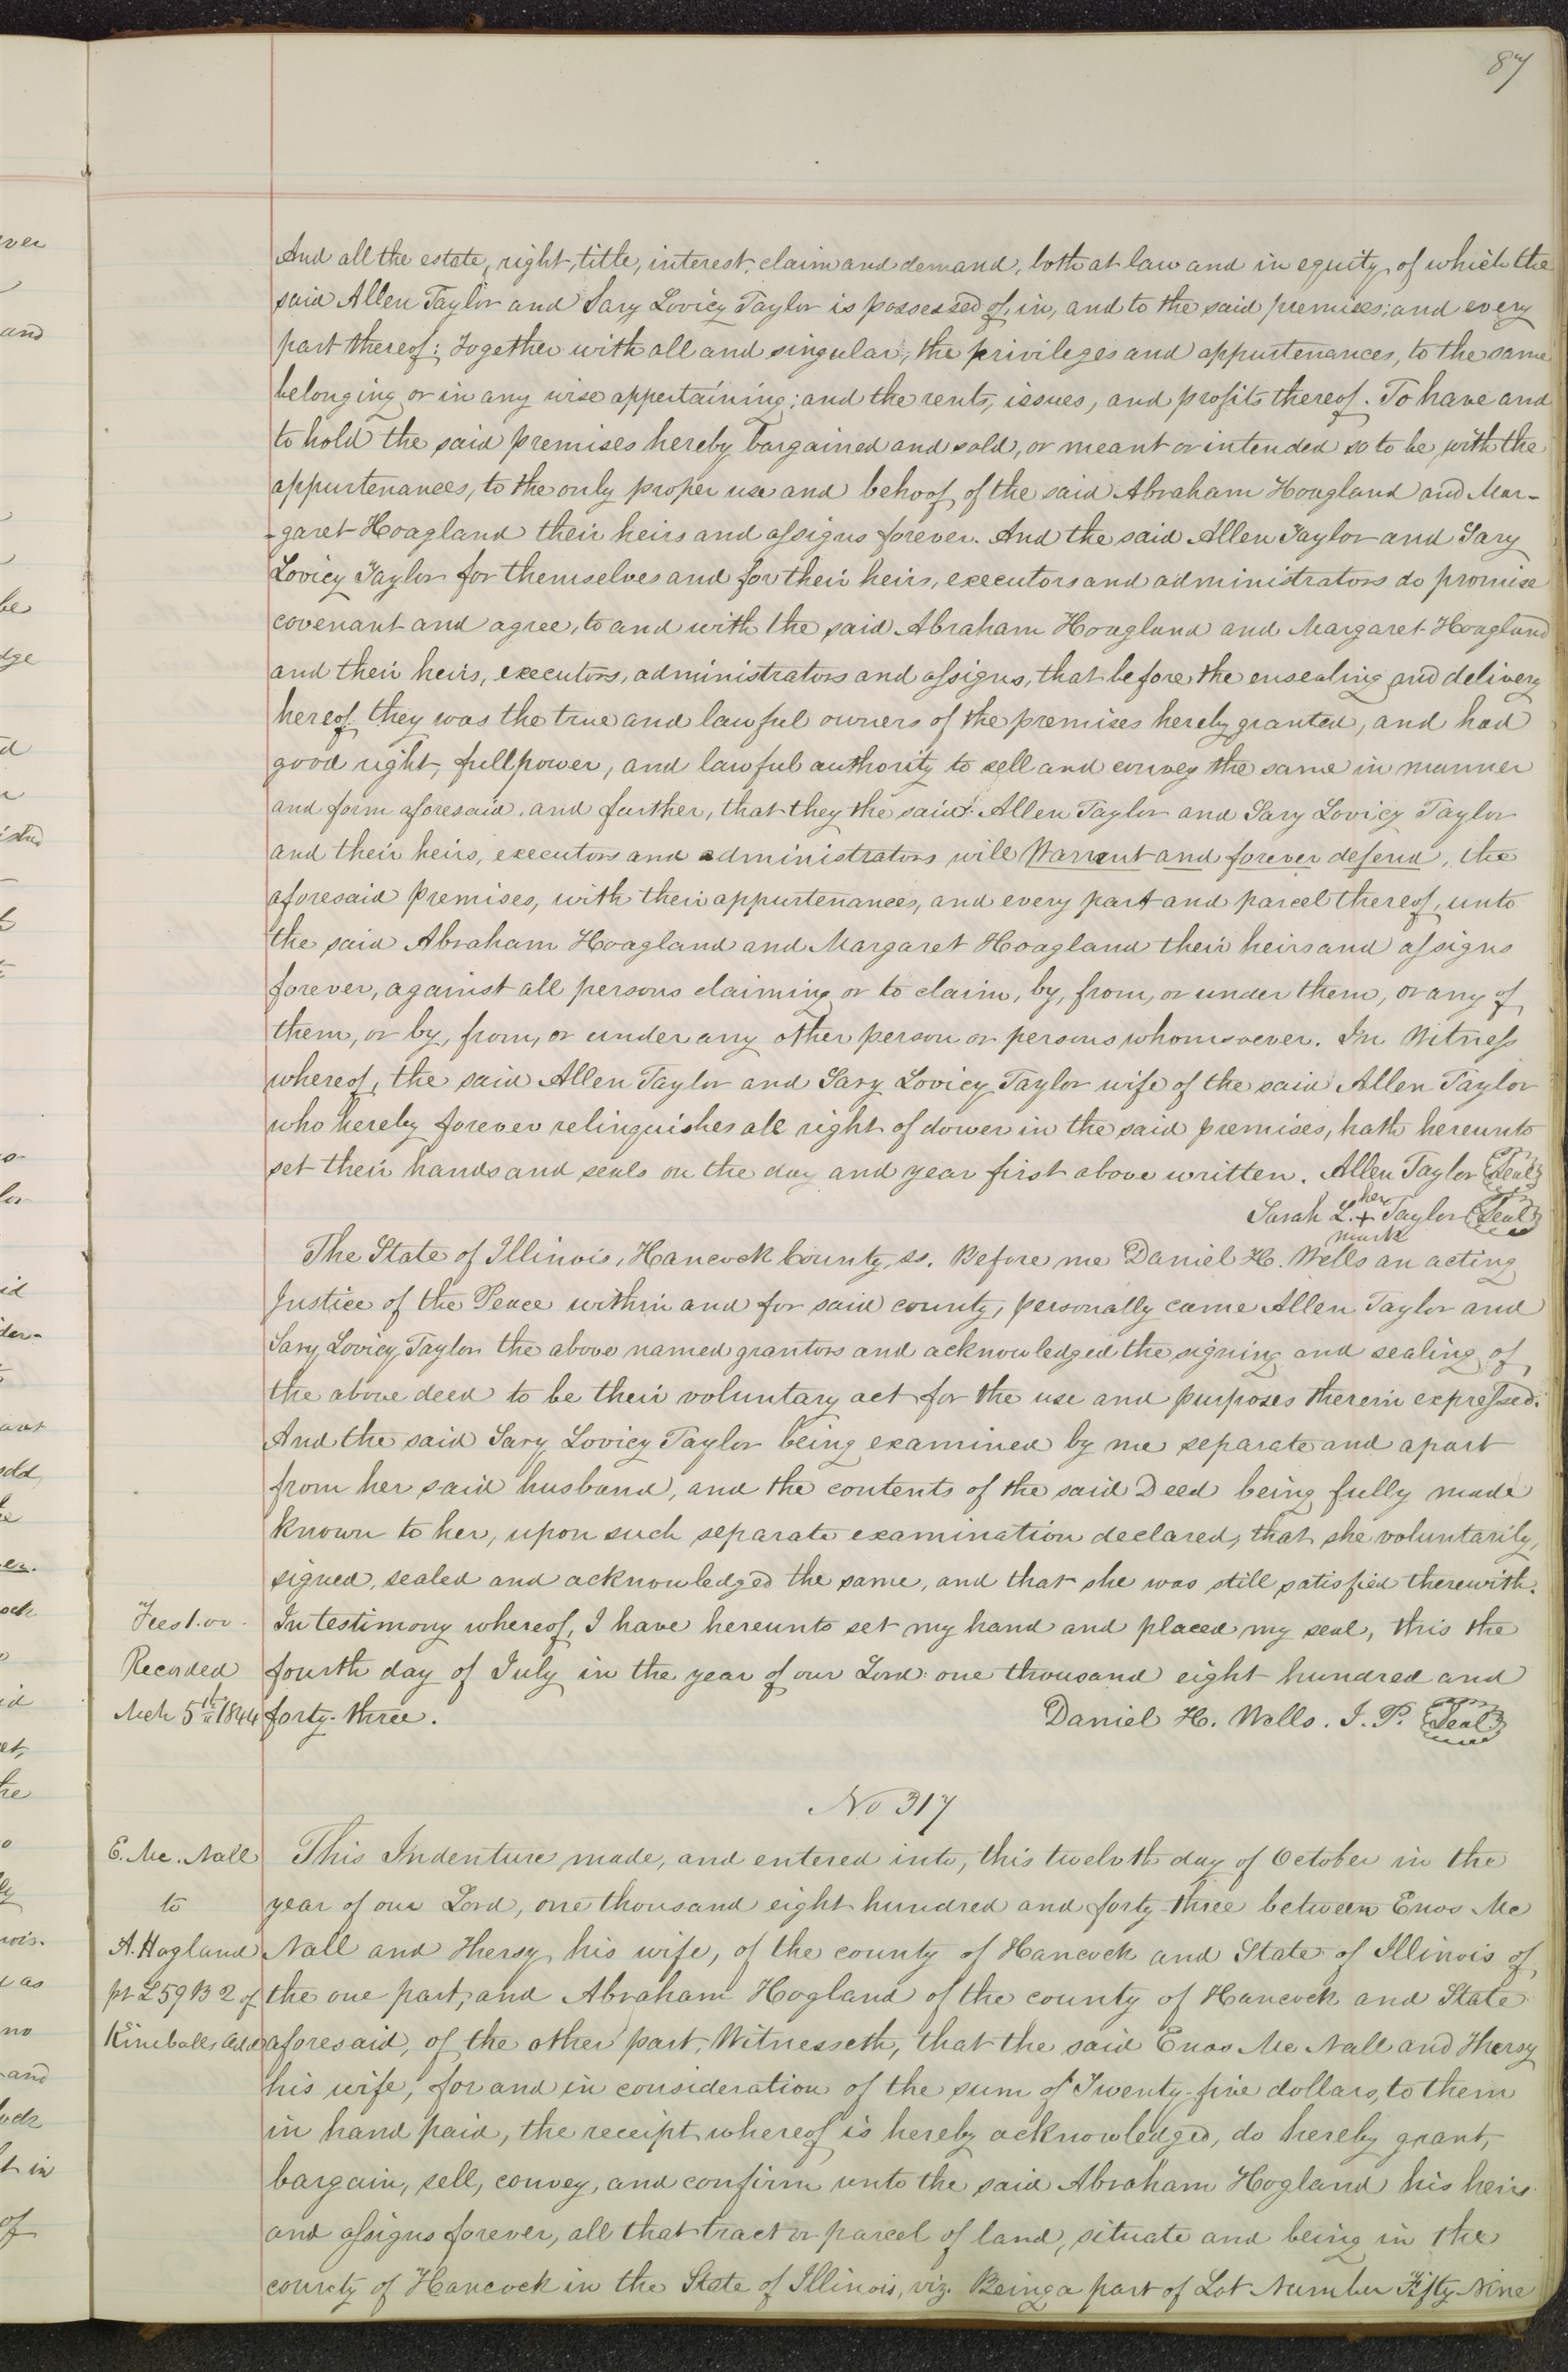 87
And all the estate, right, title, interest, claim and demand, both at law and in equity, of which the
said Allen Taylor and Sary Lovicy Taylor is possessed of, in, and to the said premises; and every
part thereof; Together with all and singular, the privileges and appurtenances, to the same
belonging or in any wise appertaining; and the rents, issues, and profits thereof. To have and
to hold the said premises hereby bargained and sold, or meant or intended so to be, with the
appurtenances, to the only proper use and behoof, of the said Abraham Hoagland and Mar-
-garet Hoagland their heirs and assigns forever. And the said Allen Taylor and Sary
Lovicy Taylor for themselves and for their heirs, executors and administrators do promise
covenant and agree, to and with the said Abraham Hoagland and Margaret Hoagland
and their heirs, executors, administrators and assigns, that before the ensealing and delivery
hereof they was the true and lawful owners of the premises hereby granted, and had
good right, full power, and lawful authority to sell and convey the same in manner
and form aforesaid, and further, that they the said Allen Taylor and Sary Lovicy Taylor
and their heirs, executors and administrators will Warrant and forever defend, the
aforesaid premises, with their appurtenances, and every part and parcel thereof, unto
the said Abraham Hoagland and Margaret Hoagland their heirs and assigns
forever, against all persons claiming or to claim, by, from, or under them, or any of
them, or by, from, or under any other person or persons whomsoever. In Witness
whereof, the said Allen Taylor and Sary Lovicy Taylor wife of the said Allen Taylor
who hereby forever relinquishes all right of dower in the said premises, hath hereunto
set their hands and seals on the day and year first above written. Allen Taylor Seal
her
Sarah L. + Taylor Seal
mark
The State of Illinois, Hancock County, ss. Before me Daniel H. Wells an acting
Justice of the Peace within and for said county, personally came Allen Taylor and
Sary Lovicy Taylor the above named grantors and acknowledged the signing and sealing of
the above deed to be their voluntary act for the use and purposes therein expressed.
And the said Sary Lovicy Taylor being examined by me separate and apart
from her said husband, and the contents of the said Deed being fully made
known to her, upon such separate examination declared, that she voluntarily,
signed, sealed and acknowledged the same, and that she was still satisfied therewith.
Fees 1.00. In testimony whereof, I have hereunto set my hand and placed my seal, this the
Recorded fourth day of July in the year of our Lord one thousand eight hundred and
Mch 5th 1844 forty-three. Daniel H. Wells. J. P. Seal
No 317
E. Mc. Nall This Indenture made, and entered into, this twelvth day of October in the
to year of our Lord, one thousand eight hundred and forty-three between Enos Mc
A. Hogland Nall and Thersy his wife, of the county of Hancock and State of Illinois of
pt L 59 B 2 of the one part, and Abraham Hogland of the county of Hancock and State
Kimballs add aforesaid, of the other part, Witnesseth, that the said Enos Mc Nall and Thersy
his wife, for and in consideration of the sum of Twenty-five dollars, to them
in hand paid, the receipt whereof is hereby acknowledged, do hereby grant,
bargain, sell, convey, and confirm unto the said Abraham Hogland his heirs
and assigns forever, all that tract or parcel of land, situate and being in the
county of Hancock in the State of Illinois, viz. Being a part of Lot Number Fifty Nine